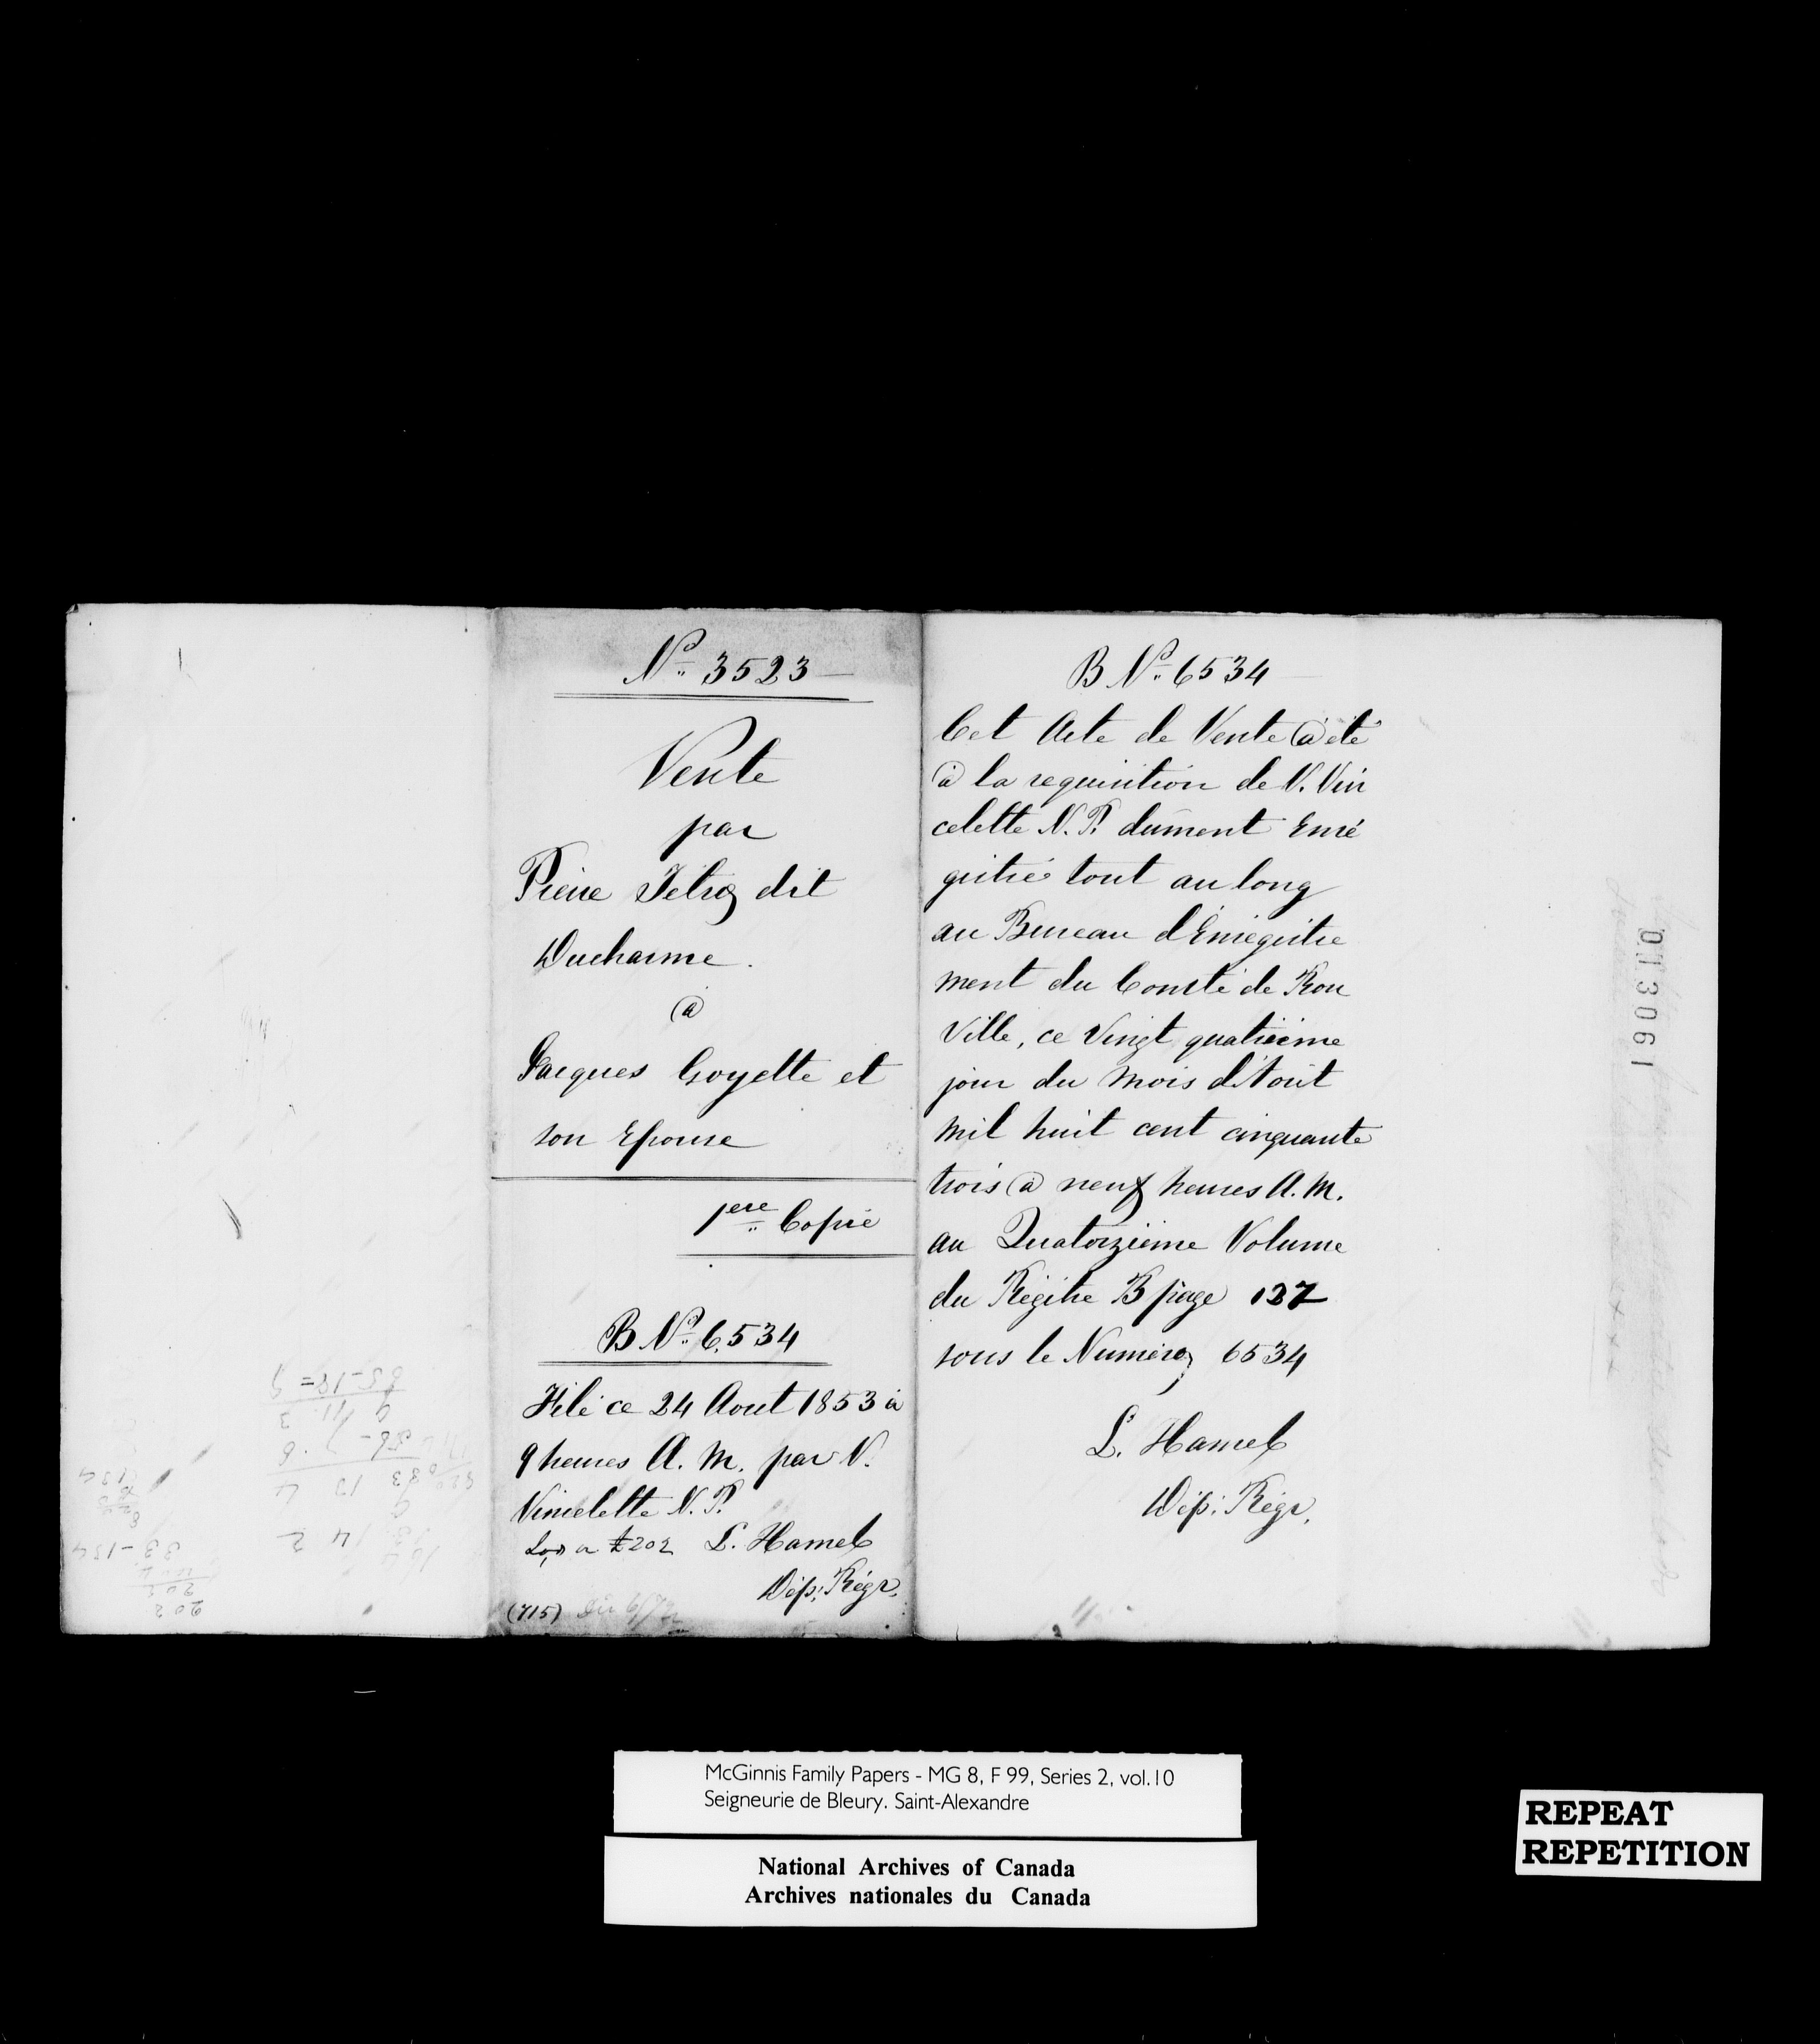 No. 3523
Vente
par
Pierre Tetro dit
Ducharme.
(à
Jacques Goyette et
son Epouse
1ere Copie
B No. 6534
Filé ce 24 Aout 1853 à
9 heures A. M. par V.
Vincelette N. P.
Lods a £202 L. Hamel
Dép: Régr.
(715)
B No. 6534
Cet Acte de Vente a été
à la requisition de V. Vin
celette N. P. dûment Enré
gistré tout au long
au Bureau d'Enregistre
ment du Comté de Rou
ville, ce Vingt quatrième
jour du mois d'Aout
mil huit cent cinquante
trois à neuf heures A. M.
au Quatorzième Volume
du Régitre B page 137
sous le Numéro 6534
L. Hamel
Dép: Régr.
013061
McGinnis Family Papers - MG 8, F 99, Series 2, vol.10
Seigneurie de Bleury. Saint-Alexandre
National Archives of Canada
Archives nationales du Canada
REPEAT
REPETITION